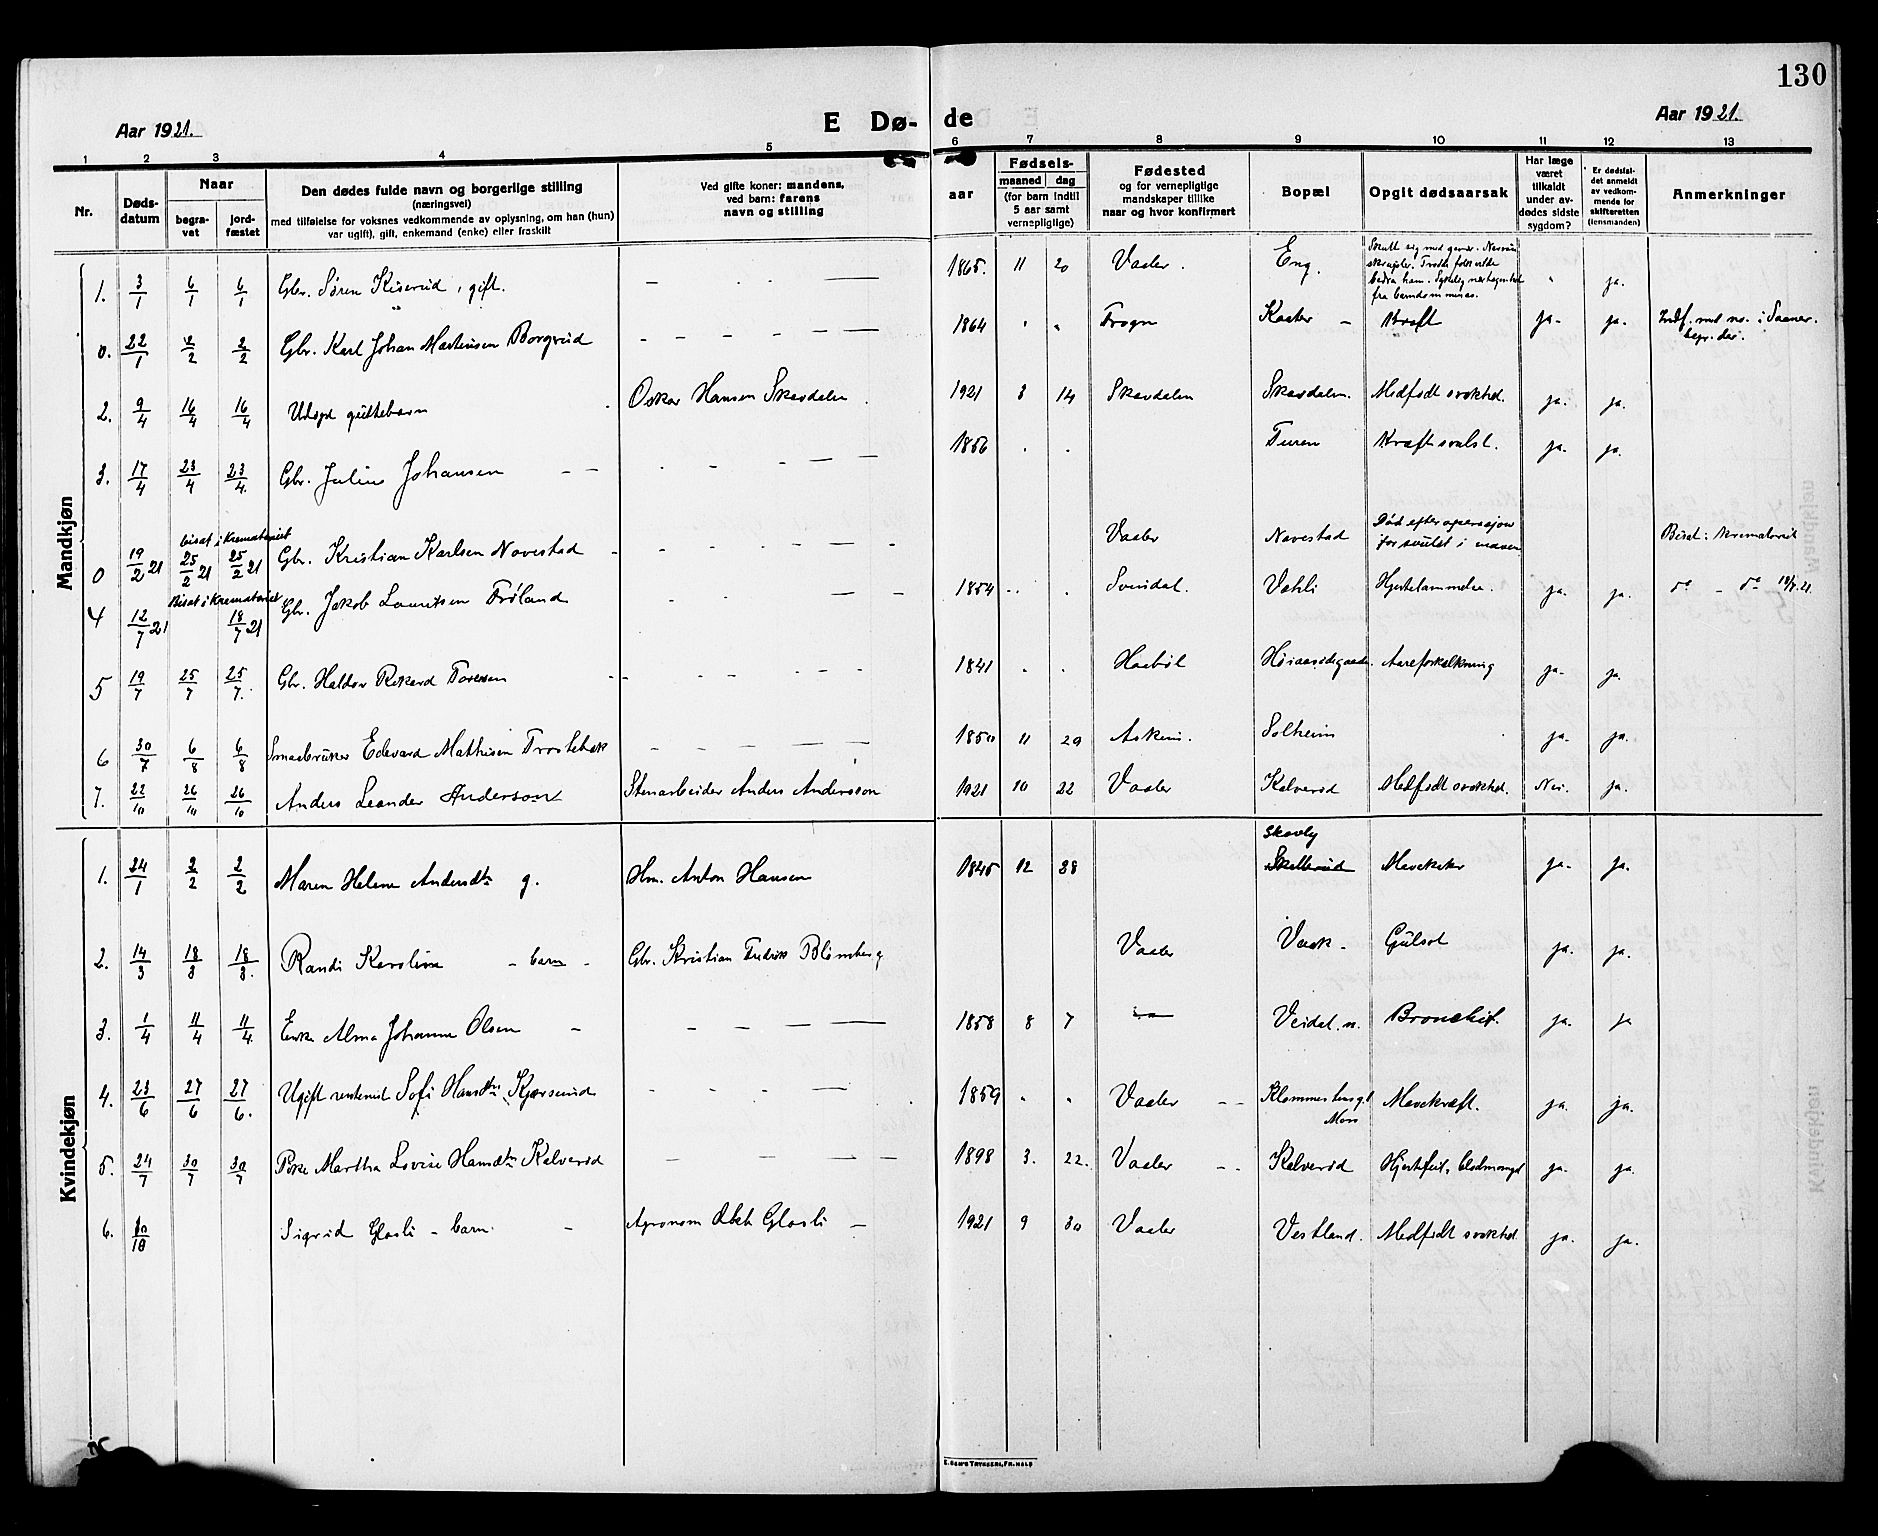 130
Aar 1921.
E Dø- de
Aar 1921.
1 2 3 4 5 6 7 8 9 10 11 12 13
Nr.
Døds-
datum
Naar
begra-
vet
jord-
fæstet
Den dødes fulde navn og borgerlige stilling
(næringsvei)
med tilføielse for voksnes vedkommende av oplysning, om han (hun)
var ugift), gift, enkemand (enke) eller fraskilt
Ved gifte koner: mandens,
ved barn: farens
navn og stilling
aar
Fødsels-
maaned dag
(for barn indtil
5 aar samt
vernepligtige)
Fødested
og for vernepligtige
mandskaper tillike
naar og hvor konfirmert
Bopæl
Opgit dødsaarsak
Har læge
været
tilkaldt
under av-
dødes sidste
sygdom?
Er dødsfal-
det anmeldt
av vedkom-
mende for
skifteretten
(lensmanden)
Anmerkninger
Mandkjøn
1. 3/1 6/1 6/1 Gbr. Søren Kiserud, gift. — 1865. 11 20 Vaaler. Eng. Skutt sig med gevær. " ja.
fra barndommen av.
0. 22/1 2/2 2/2 Gbr. Karl Johan Martinsen Borgerud — 1864 " " Frogn Kaater — Kræft ja- ja. Indf. med no. i Saaner.
begr. der.
2. 9/4 16/4 16/4 Udøpt guttebarn Oskar Hansen Skavdalen 1921 3 14 Skavdalen Skavdalen. Medfødt svakhed. ja. ja.
3. 17/4 23/4 23/4. Gbr. Julius Johansen — 1856 Turen Kræftsvulst. ja- ja.
bisat i Krematoriet
0 19/2 21 25/2 21 25/2 21 Gbr. Kristian Karlsen Navestad — Vaaler Navestad Død efter operasjon
for svulst i maven Bisat i krematoriet
Bisat i Krematoriet
4 12/7 21 18/7 21 Gbr. Jakob Lauritsen Frøland — 1854 Svindal. Vahli Hjertelammelse. ja. ja. do - do 18/7.21.
5 19/7 25/7 25/7. Gbr. Haldor Rikard Toresen — 1841 Haabøl Aareforkalkning ja- ja.
6 30/7 6/8 6/8 Smaabruker Edevard Mathisen Trostebæk — 1850 11 29 Askim. Solheim ja- ja.
7. 22/10 26/10 26/10 Anders Leander Anderson Stenarbeider Anders Andersson 1921 10 22 Vaaler Kelverød Medfødt svakhed. Nei. ja.
Kvindekjøn
Skovly
1. 24/1 2/2 2/2 Maren Helene Andersdtr g. Hm. Anton Hansen 1845 12 28 Skallerud ja- ja.
2. 14/3 18/3 18/3. Randi Karoline - barn - Gbr. Kristian Fredrik Blomberg Vaaler Vaak- Gulsot ja. ja.
3. 1/4 11/4 11/4. Enke Alma Johanne Olsen — 1858 8 7 Veidal. n. Bronchit. ja. ja
4. 23/6 27/6 27/6. Ugift rentenist Sofi Hansdtr. Kjærserud — 1859 " " Vaaler Mavekræft. ja. ja.
Moss
5. 24/7 30/7 30/7 Pike Martha Lovise Hansdtr Kelverød — 1898 3. 22. Vaaler Kelverød Hjertefeil, blodmangel ja- ja.
6. 10/10 Sigrid Glosli - barn. Agronom Glosli — 1921 9 30 Vaaler Vestland. Medfødt svakhed ja. ja.